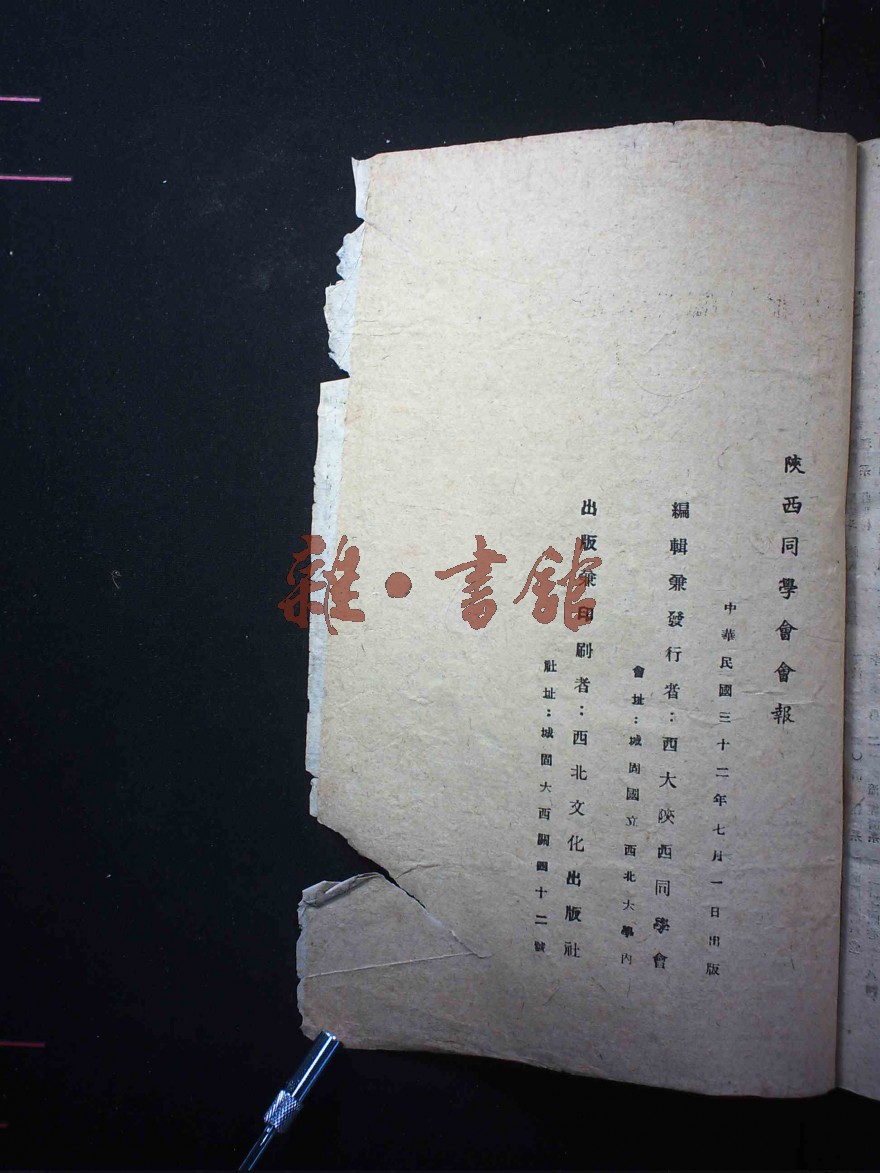 陝西同學會會報
中華民國三十二年七月一日出版
編輯兼發行者：西大陝西同學會
會址：城固國立西北大學內
出版兼印刷者：西北文化出版社
社址：城固大西關四十二號
雜·書館